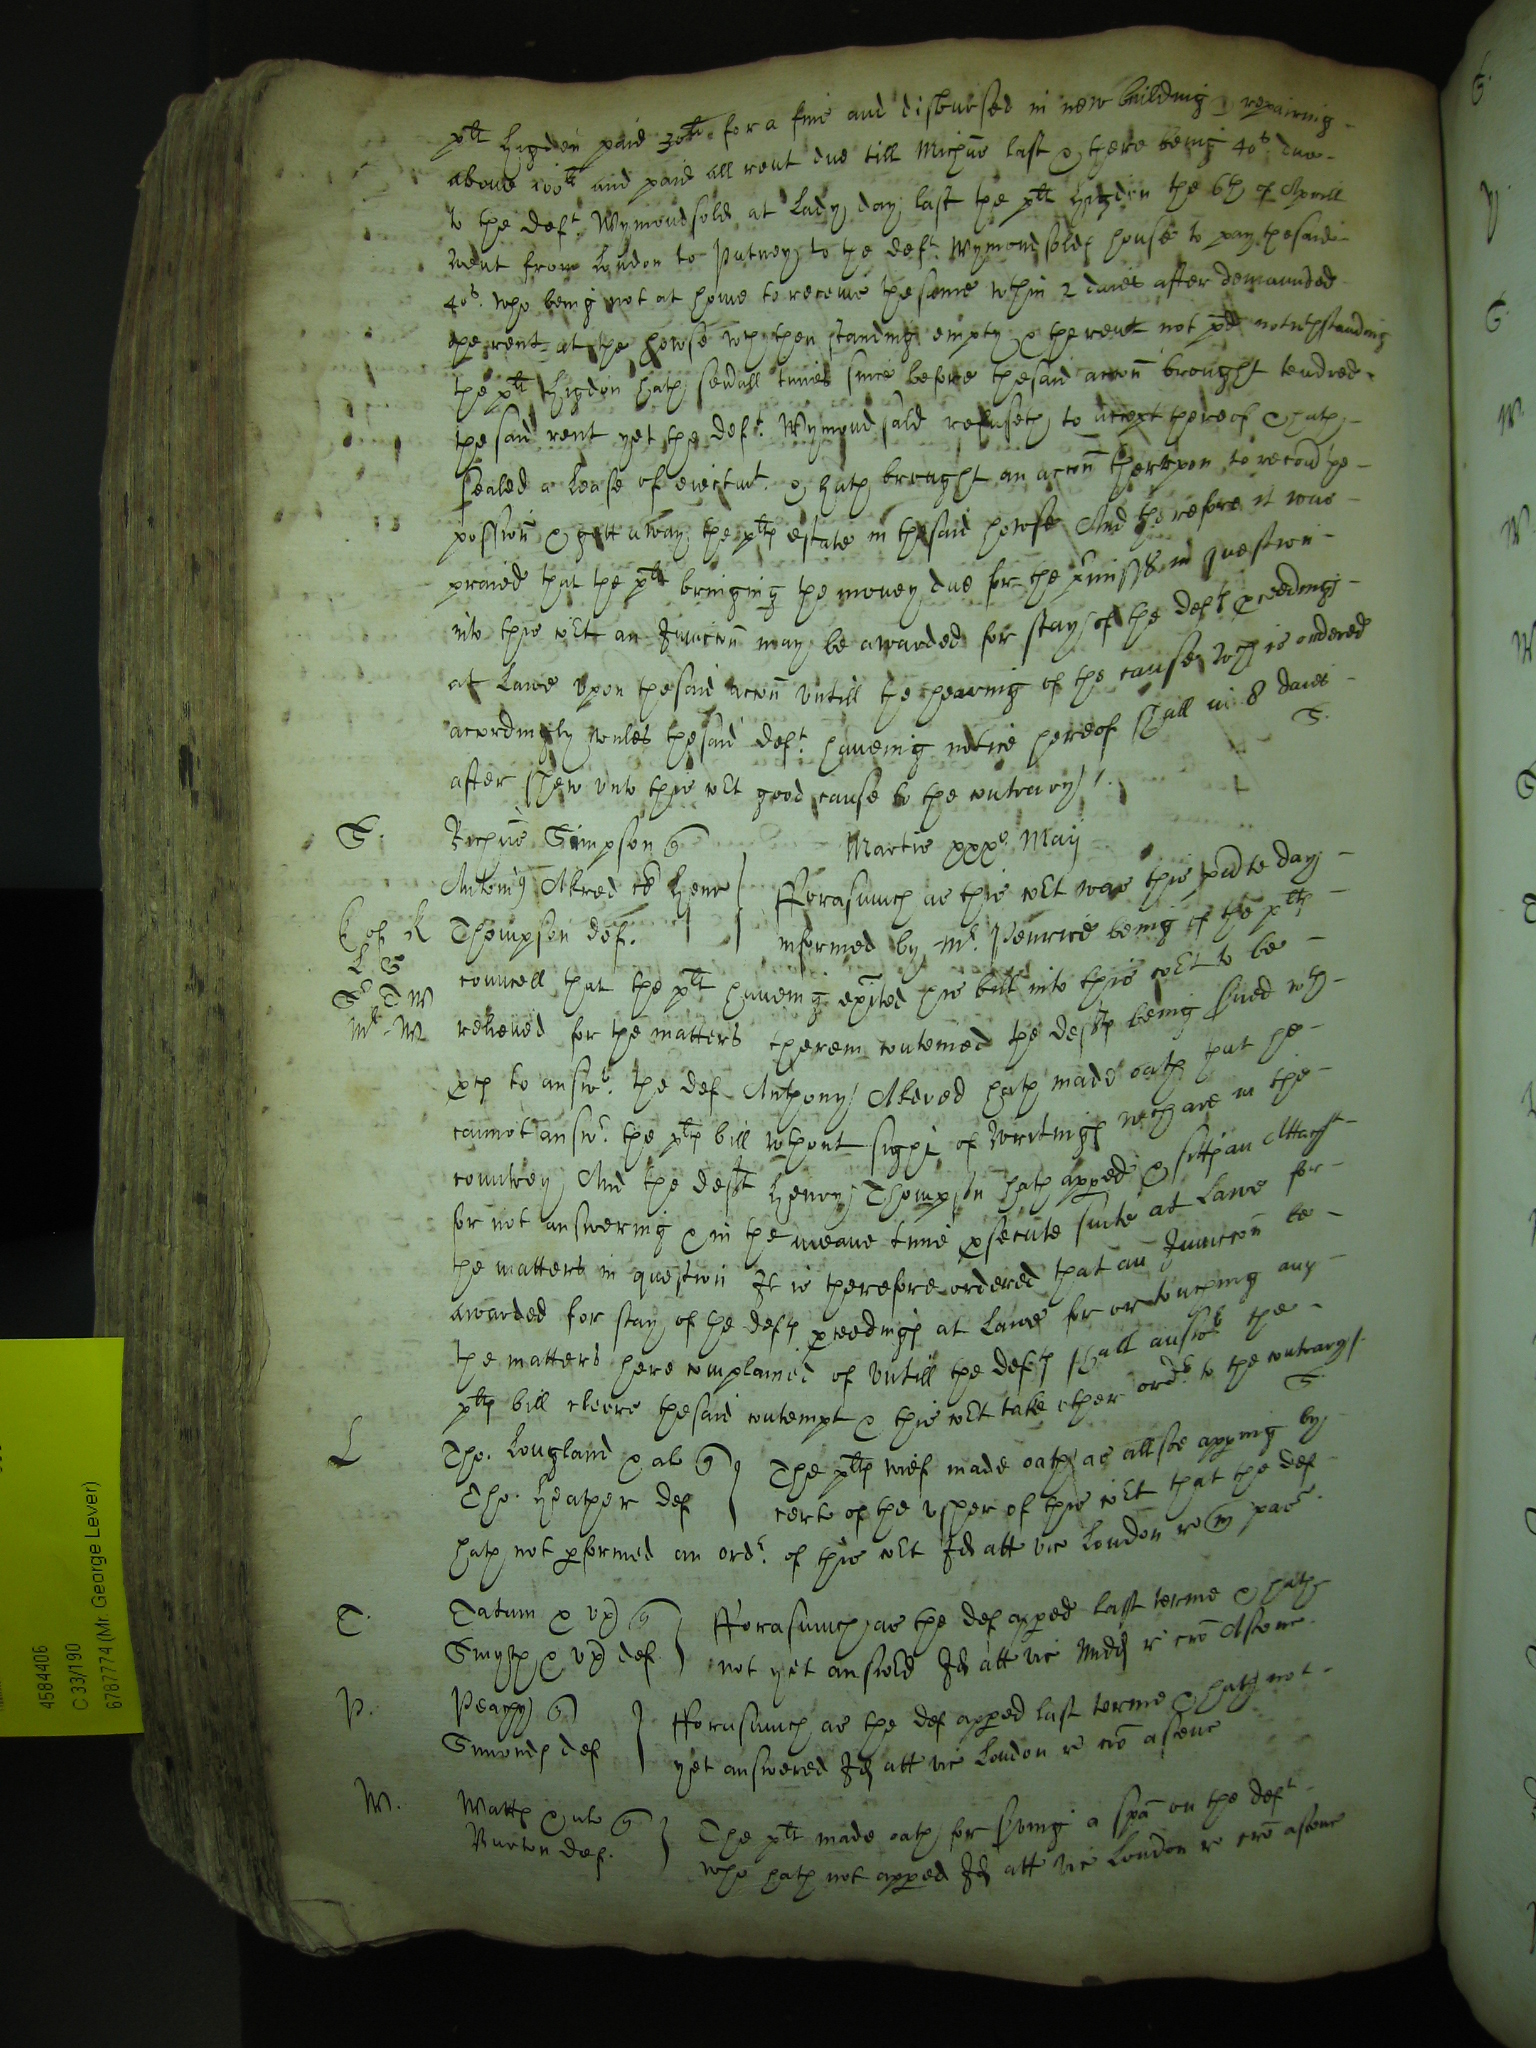 plt Higden paid 30li for a fine and disbursed in new building & repairing
above 100li and paid all rent due till Michas last & there being 40s due
to the deft Wymondsold at Lady day last the plt Higden the 6th of Aprill
went from London to Putney to the deft Wymondsolds house to pay the said
40s. who being not at home to receive the same wthin 2 daies after demaunded
the rent at the howse wch then standing empty & the rent not pd notwthstanding
the plt Higdon hath sevall times since before the said accon brought tendred
the said rent yet the deft Wymondsold refuseth to accept thereof & hath
sealed a lease of eiectmt & hath brought an accon therupon to recover the
possion & gett away the plts estate in the said howse And therefore it was
praied that the plt bringing the money due for the pmisses in question
into this cort an Iniuccon may be awarded for stay of the defts pceedings
at Lawe upon the said accon untill the hearing of the cause wch is ordered
accordingly unles the said deft haveing notice hereof shall in 8 daies
after shew unto this cort good cause to the contrary /.
S.
S.
Richus Simpson q
Martis xxxo Maij
Antonius Akred et Henr
Thompson def.
Forasmuch as this cort was this pnte day
informed by Mr. Penrice being of the plts
councell that the plt haveing exited his bill into this cort to be
releived for the matters therein conteined the defts being sued wth
pces to answr. the def Anthony Akered hath made oath that he
cannot answr. the plts bill wthout sight of writings wch are in the
countrey And the deft Henry Thompson hath apped & sitts an Attachmt
for not answering & in the meane time psecute suite at Lawe for
the matters in question It is therefore ordered that an Iniuccon be
awarded for stay of the defts pceedings at Lawe for or touching any
the matters here complained of untill the defts shall answr the
plts bill cleere the said contempt & this cort take other ordr. to the contrary /.
S.
L
Tho. Longland & al q
Tho. Heather def
The plts wief made oath as allsoe apping by
certe of the usher of this cort that the def
hath not pformed an ordr. of this cort Ids att vic London
T.
Tatum & ux q
Smyth & ux def.
Forasmuch as the def apped last terme & hath
not yet answered Ids att vic Midd r cro Ascenc.
P.
Peachy q
Simonds def
Forasmuch as the def apped last terme & hath not
yet answered Ids att vic London re cro ascenc
W.
Watts & al q
Burton def.
The plt made oath for sving a spa on the deft
who hath not apped Ids att vic London re cro ascenc
4584406
C 33/190
6787774 (Mr. George Lever)